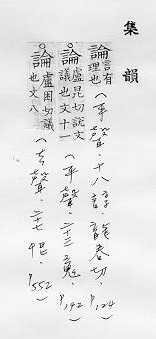 集韻
論言有理也(平聲．十八諄．龍春切．P124)
論盧昆切說文議也文十一(平聲．二十三䰟．P142)
論盧困切議也文八(去聲．二十七慁．P552)